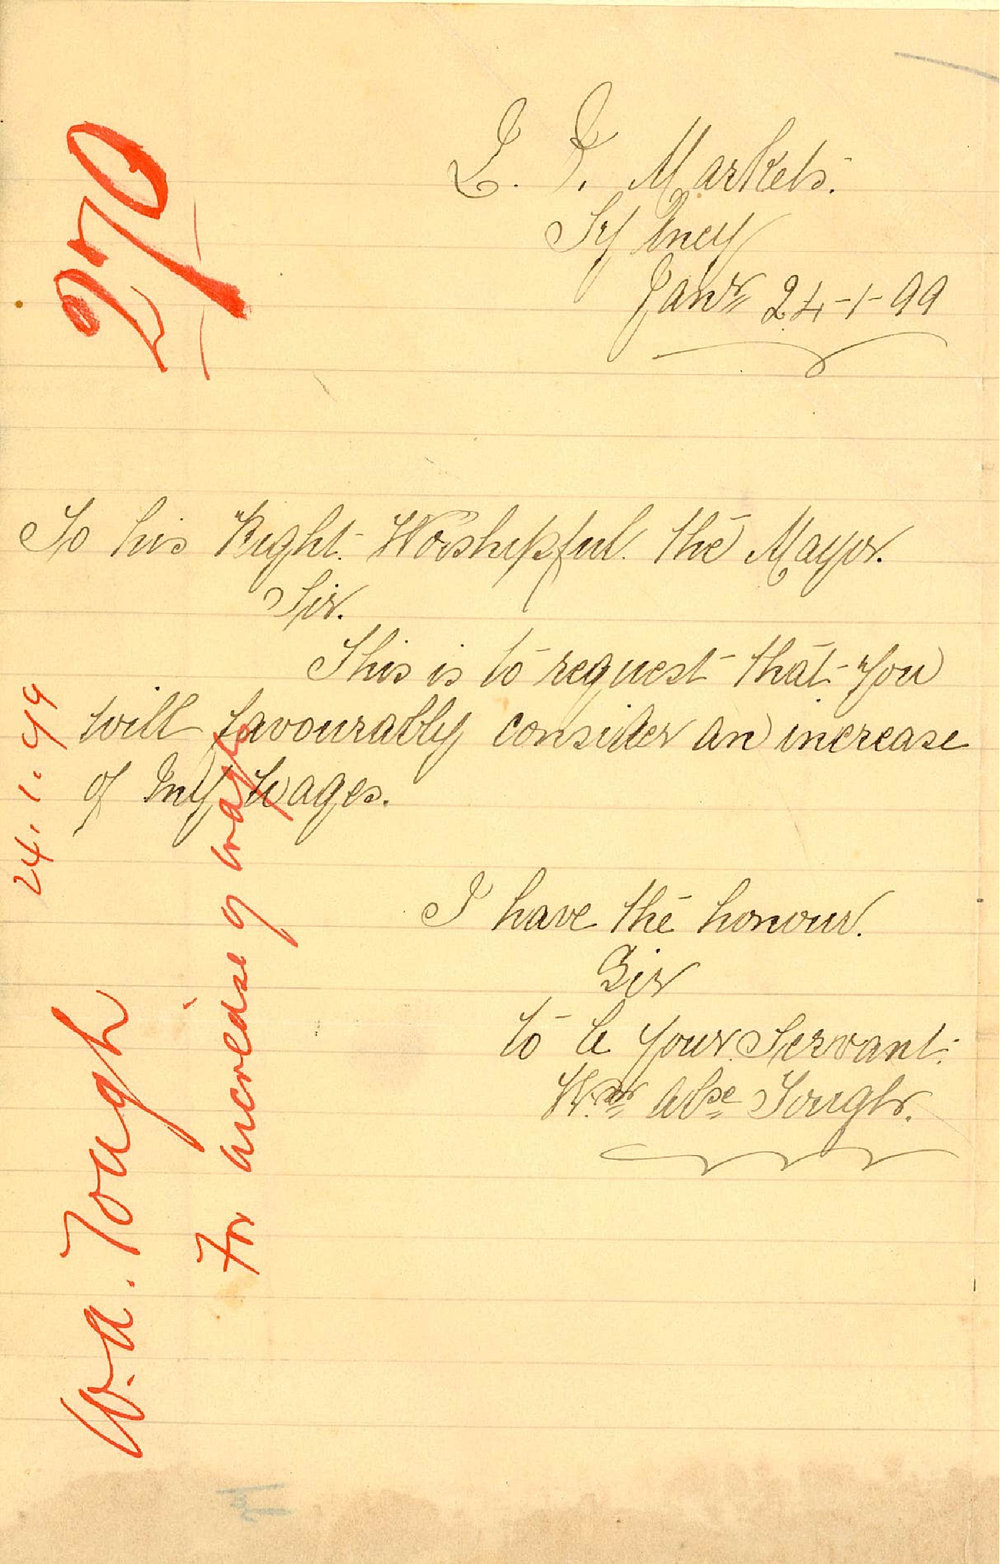 270
Markets.
Sydney
Janr 24-1-99
To his Right Worshipful the Mayor.
Sir.
This is to request that you
will favourably consider an increase
of my wages.
I have the honour.
Sir
to be your Servant.
Wm Tough.
24.1.99
W.A. Tough
For increase of wages